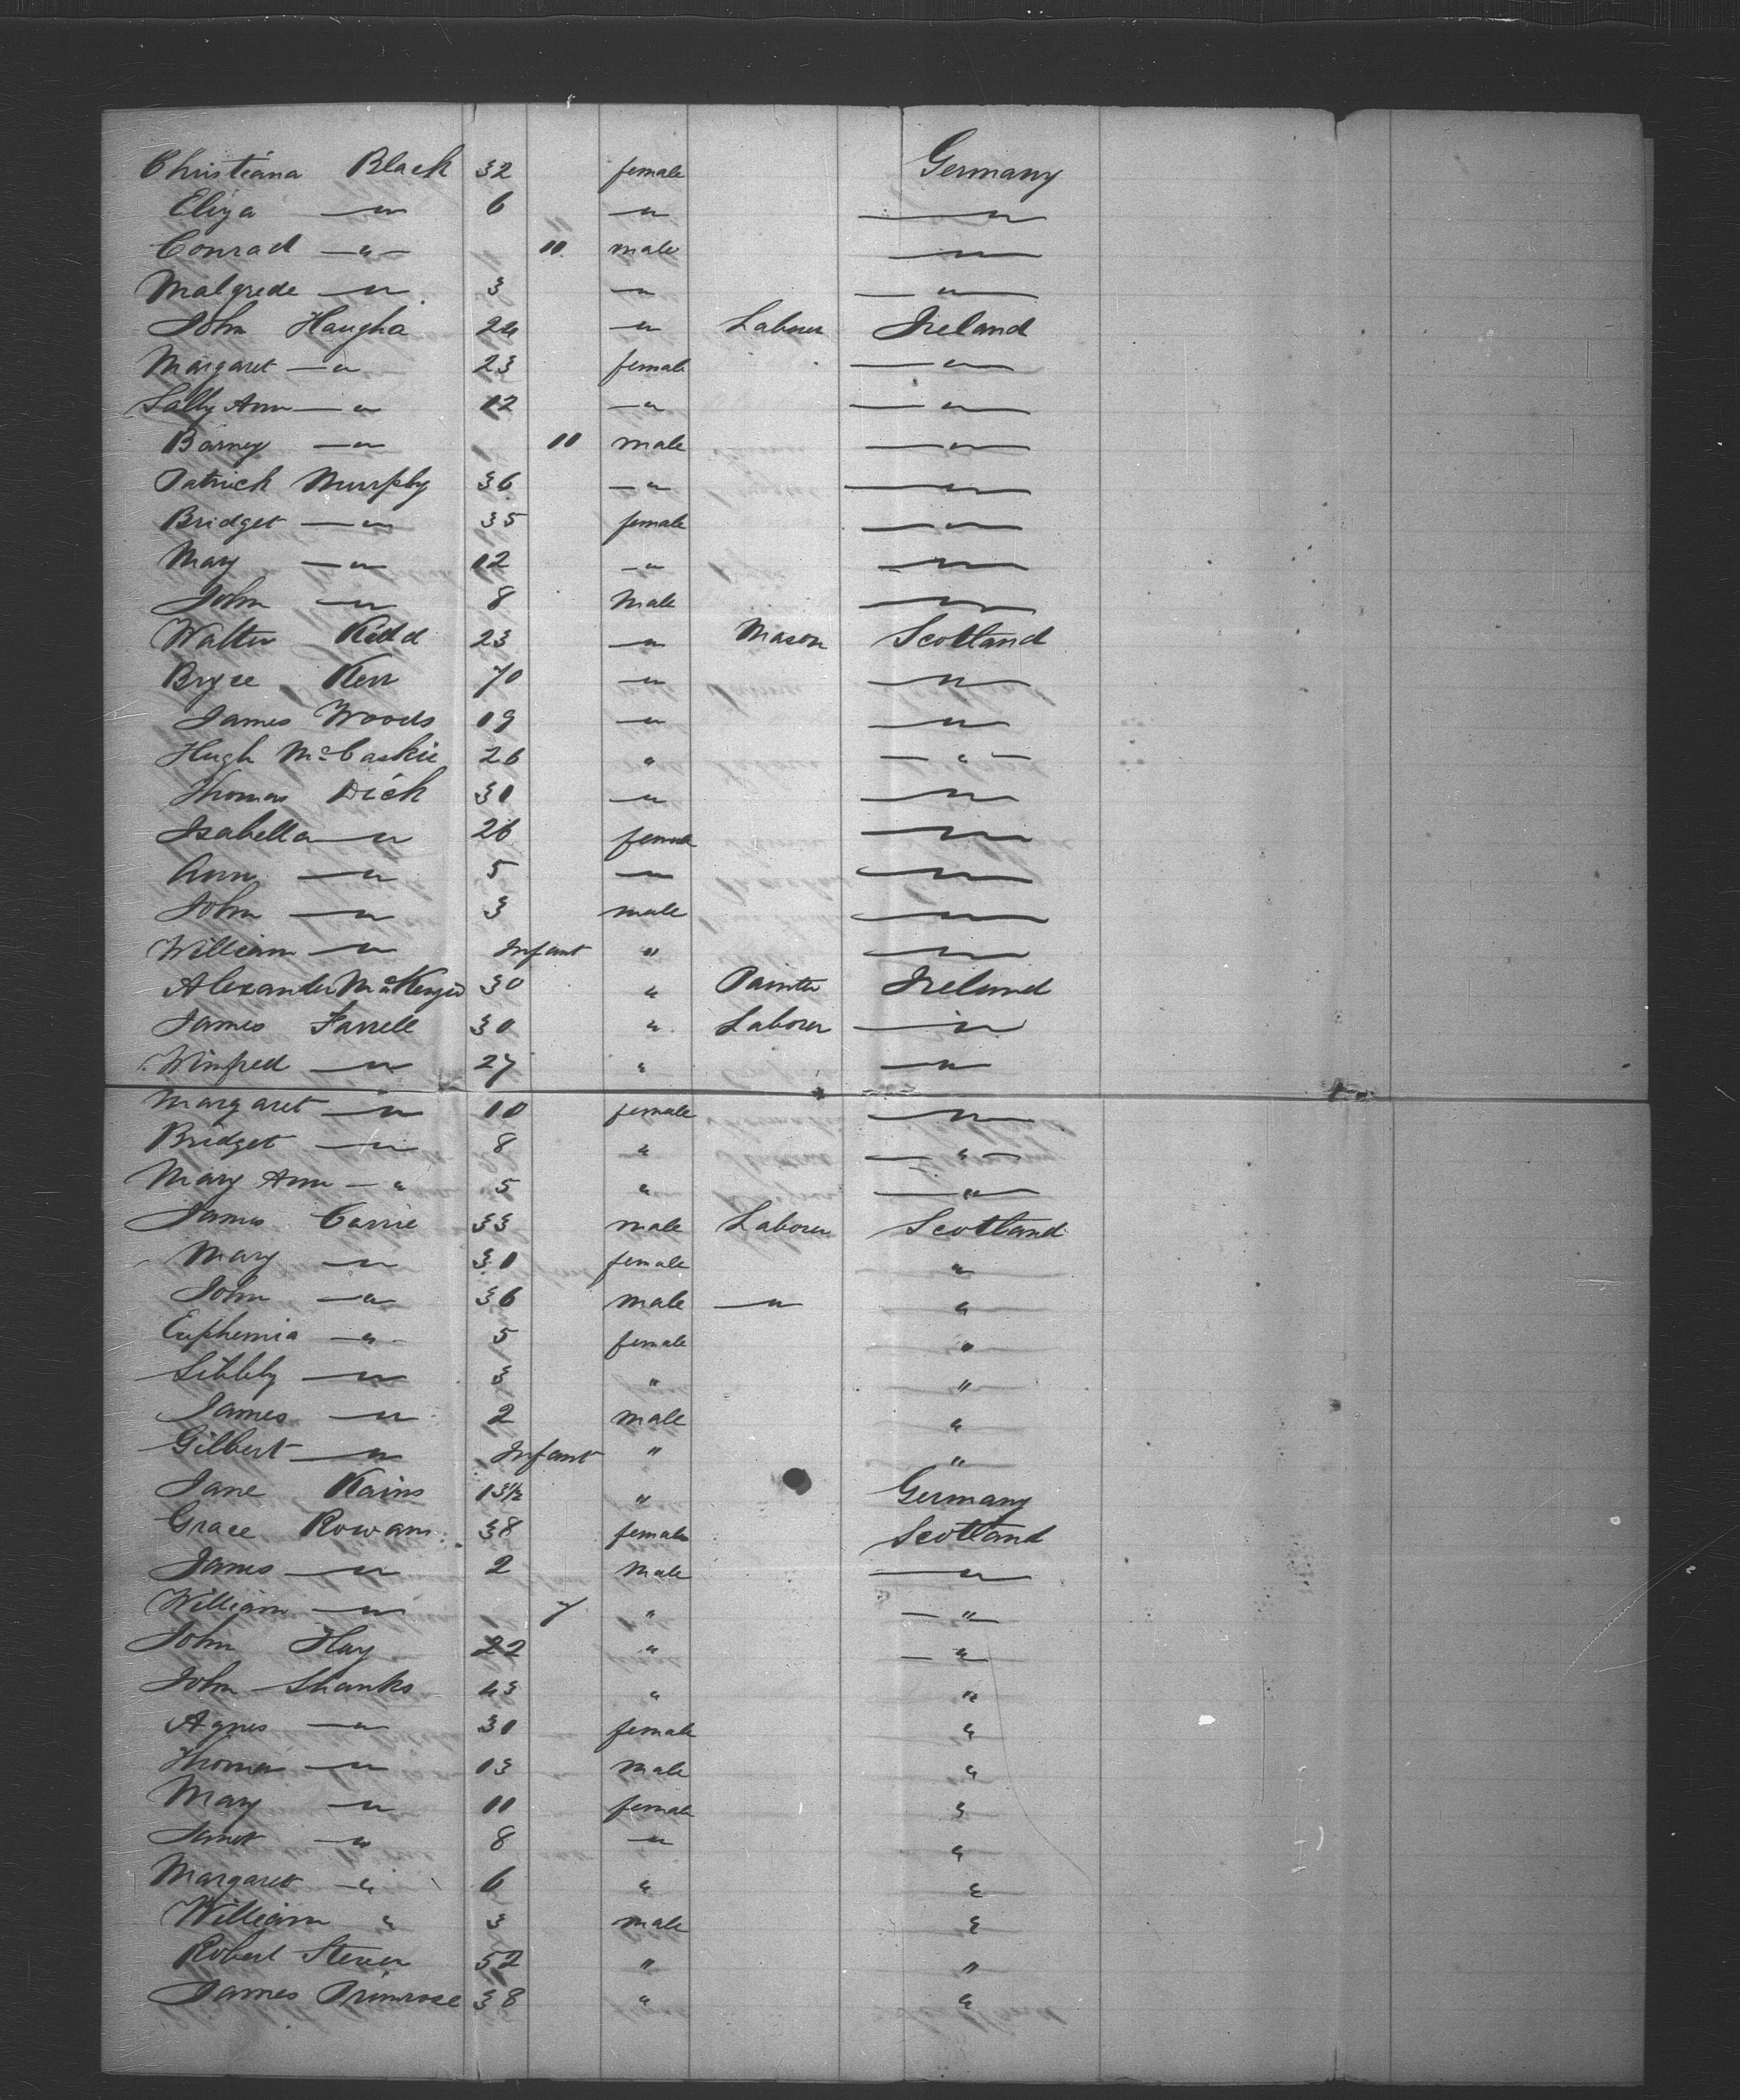 Christiana Black 32 female Germany
Eliza — " 6 — " — "
Conrad — " 11 male — "
Malgrede — " 3 — " — "
John Haugha 24 — " Laborer Ireland
Margaret — " 23 female — "
Sally Ann — " 12 — " — "
Barney — " 11 male — "
Patrick Murphy 36 — " — "
Bridget — " 35 female — "
Mary — " 12 — " — "
John — " 8 Male — "
Walter Kidd 23 — " Mason Scotland
Bryce Kerr 70 — " — "
James Woods 19 — " — "
Hugh McCaskie 26 " — " —
Thomas Dick 30 — " — "
Isabella — " 26 female — "
Ann — " 5 — " — "
John — " 3 male — "
William — " Infant " — "
Alexander McKenzie 30 " Painter Ireland
James Farrell 30 " Laborer — "
Winfred — " 27 " — "
Margaret — " 10 female — "
Bridget — " 8 " — " —
Mary Ann — " 5 " — "
James Carrie 33 male Laborer Scotland
Mary — " 30 female "
John — " 36 male — " "
Euphemia — " 5 female "
Sibbly — " 3 " "
James — " 2 male "
Gilbert — " Infant " "
Jane Kains 13½ " Germany
Grace Rowans 38 female Scotland
James — " 2 Male — "
William — " 7 " — "
John Hay 22 " — "
John Shanks 43 " "
Agnes — " 30 female "
Thomas — " 13 Male "
Mary — " 11 female "
Janet — " 8 — " "
Margaret — " 6 " "
William " 3 male "
Robert Steven 52 " "
James Primrose 38 " "